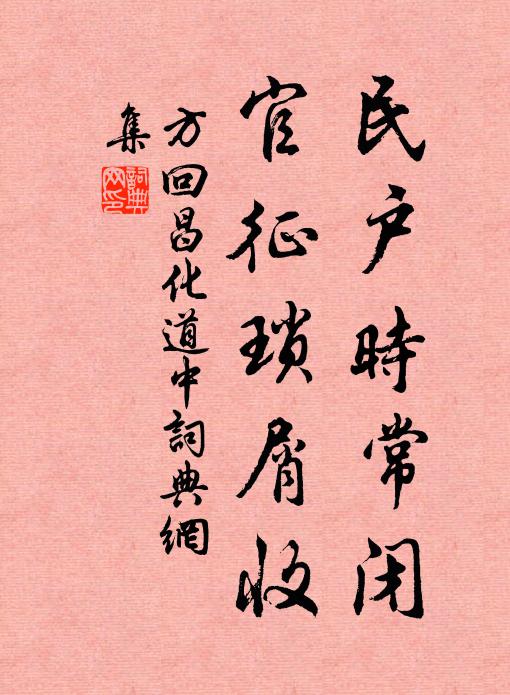 民户時常闭
官征瑣屑收
方回昌化道中詞典網
集
詞典
网印